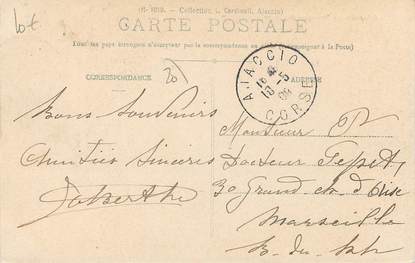 lot
(6- 1919. - Collection L. Cardinali, Ajaccio)
CARTE POSTALE
(Tous les pays étrangers n'acceptent pas la correspondance au (Se renseigner à la Poste)
CORRESPONDANCE
20
ADRESSE
AJACCIO
16
18 -5
09
CORSE
Bons Souvenirs
Amitiés Sincères
Monsieur
Docteur
30 Grand
Marseille
B. du Rh